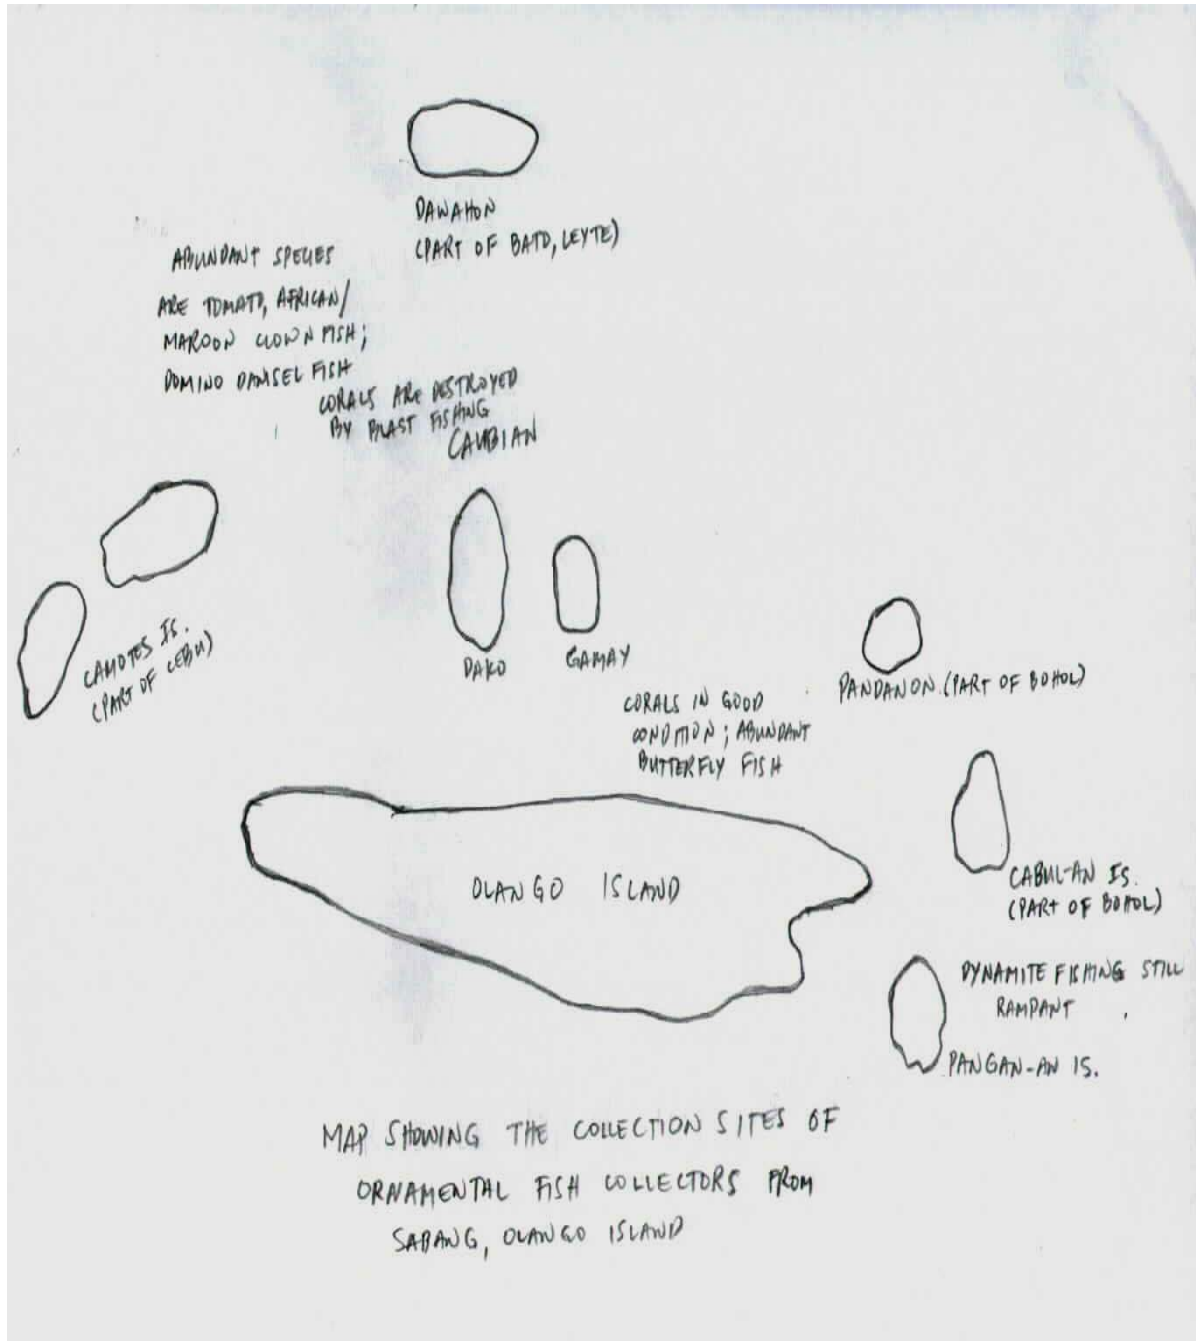 DAWAHON
(PART OF BATO, LEYTE)
ABUNDANT SPECIES
ARE TOMATO, AFRICAN/
MAROON CLOWNFISH;
DOMINO DAMSEL FISH
CORALS ARE DESTROYED
BY BLAST FISHING
CAUBIAN
CAMOTES IS.
(PART OF CEBU)
DAKO
GAMAY
PANDANON (PART OF BOHOL)
CORALS IN GOOD
CONDITION; ABUNDANT
BUTTERFLY FISH
OLANGO ISLAND
CABUL-AN IS.
(PART OF BOHOL)
DYNAMITE FISHING STILL
RAMPANT
PANGAN-AN IS.
MAP SHOWING THE COLLECTION SITES OF
ORNAMENTAL FISH COLLECTORS FROM
SABANG, OLANGO ISLAND